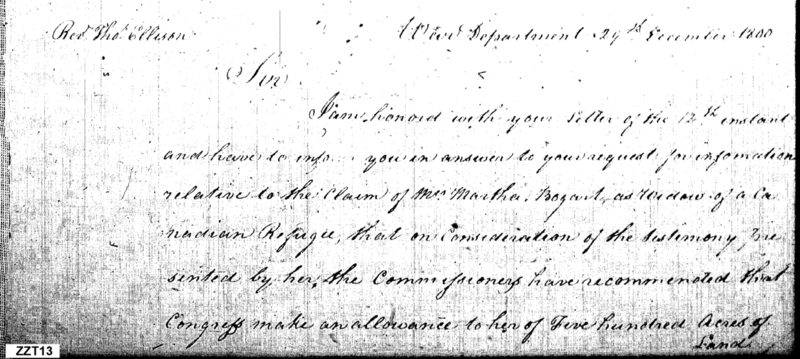 Revd Thos Ellison
War Department 29th December 1800
Sir
I am honord with your letter of the 12th instant
and have to info... you in answer to your request for infomation
relative to the Claim of Mrs Martha Bogart, as Widow of a Ca
nadian Refugee, that on Consideration of the testimony Pre
sented by her, the Commissioners have recommended that
Congress make an allowance to her of Five hundred Acres of
Land
ZZT13